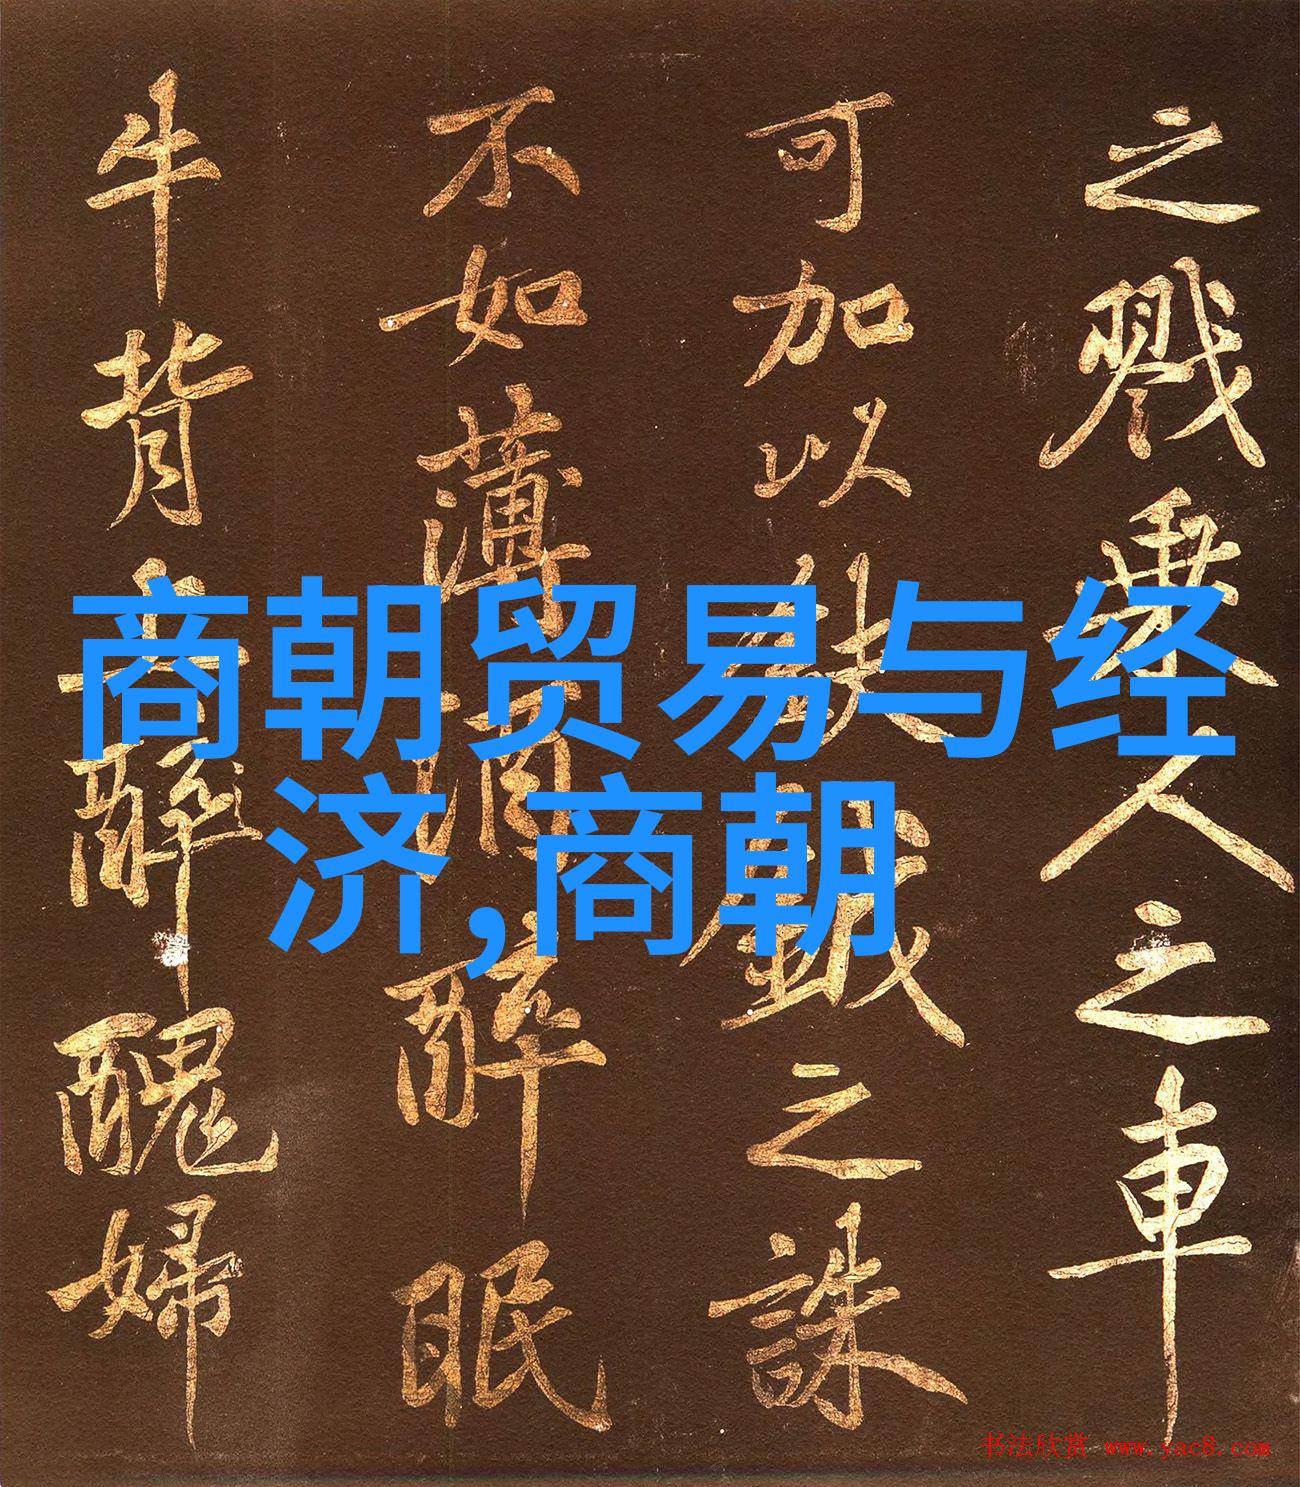 商朝贸易与经
济,商朝
之戮乘人之車
可加以鈇鉞之誅
不如薄酒醉眠
牛背上醉醜婦
书法欣赏 www.yac8.com